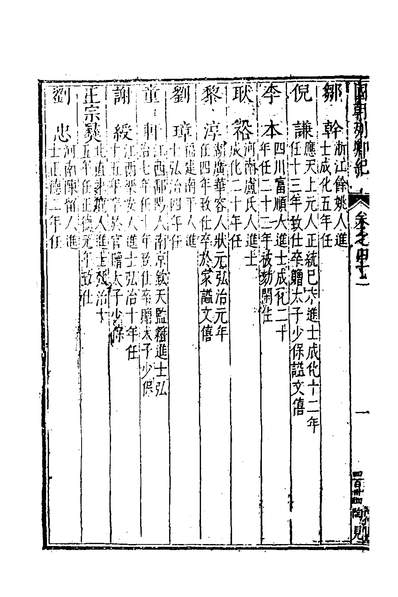 國朝列卿紀 卷之四十二 一
鄒幹 浙江餘姚人進
士成化五年任
倪謙 應天上元人正統己未進士成化十二年
任十三年致仕卒贈太子少保謚文僖
李本 四川富順人進士成化二十
年任二十二年被劾閒住
耿裕 河南盧氏人進士
成化二十年任
黎淳 湖廣華容人狀元弘治元年
任四年致仕卒於家謚文僖
劉璋 福建南平人進
士弘治四年任
童軒 江西鄱陽人南京欽天監籍進士弘
治七年任十年致仕卒贈太子少保
謝綬 江西樂安人進士弘治十年任
十五年卒於官贈太子少保
王宗彝 人進士弘治十
五年任正德元年致仕
劉忠 河南陳留人進
士正德二年任